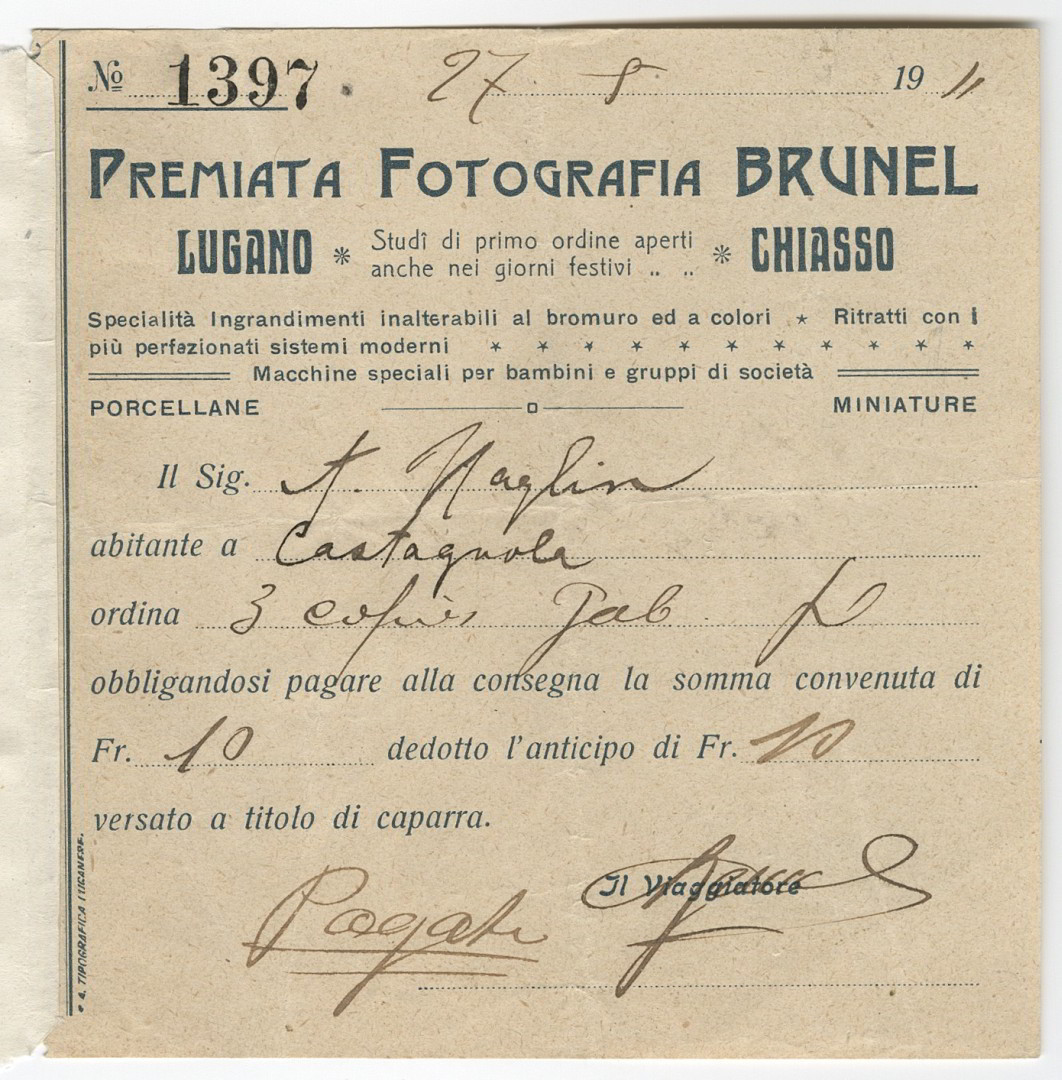 No 1397. 27. 8. 1911
PREMIATA FOTOGRAFIA BRUNEL
LUGANO * Studî di primo ordine aperti anche nei giorni festivi .. .. * CHIASSO
Specialità Ingrandimenti inalterabili al bromuro ed a colori * Ritratti con i
più perfezionati sistemi moderni * * * * * * * * * * *
Macchine speciali per bambini e gruppi di società
PORCELLANE MINIATURE
Il Sig. A. Naglin
abitante a Castagnola
ordina 3 copies Gab.
obbligandosi pagare alla consegna la somma convenuta di
Fr. 10 dedotto l'anticipo di Fr. 10
versato a titolo di caparra.
Il Viaggiatore
Pagato
TIPOGRAFICA LUGANESE.